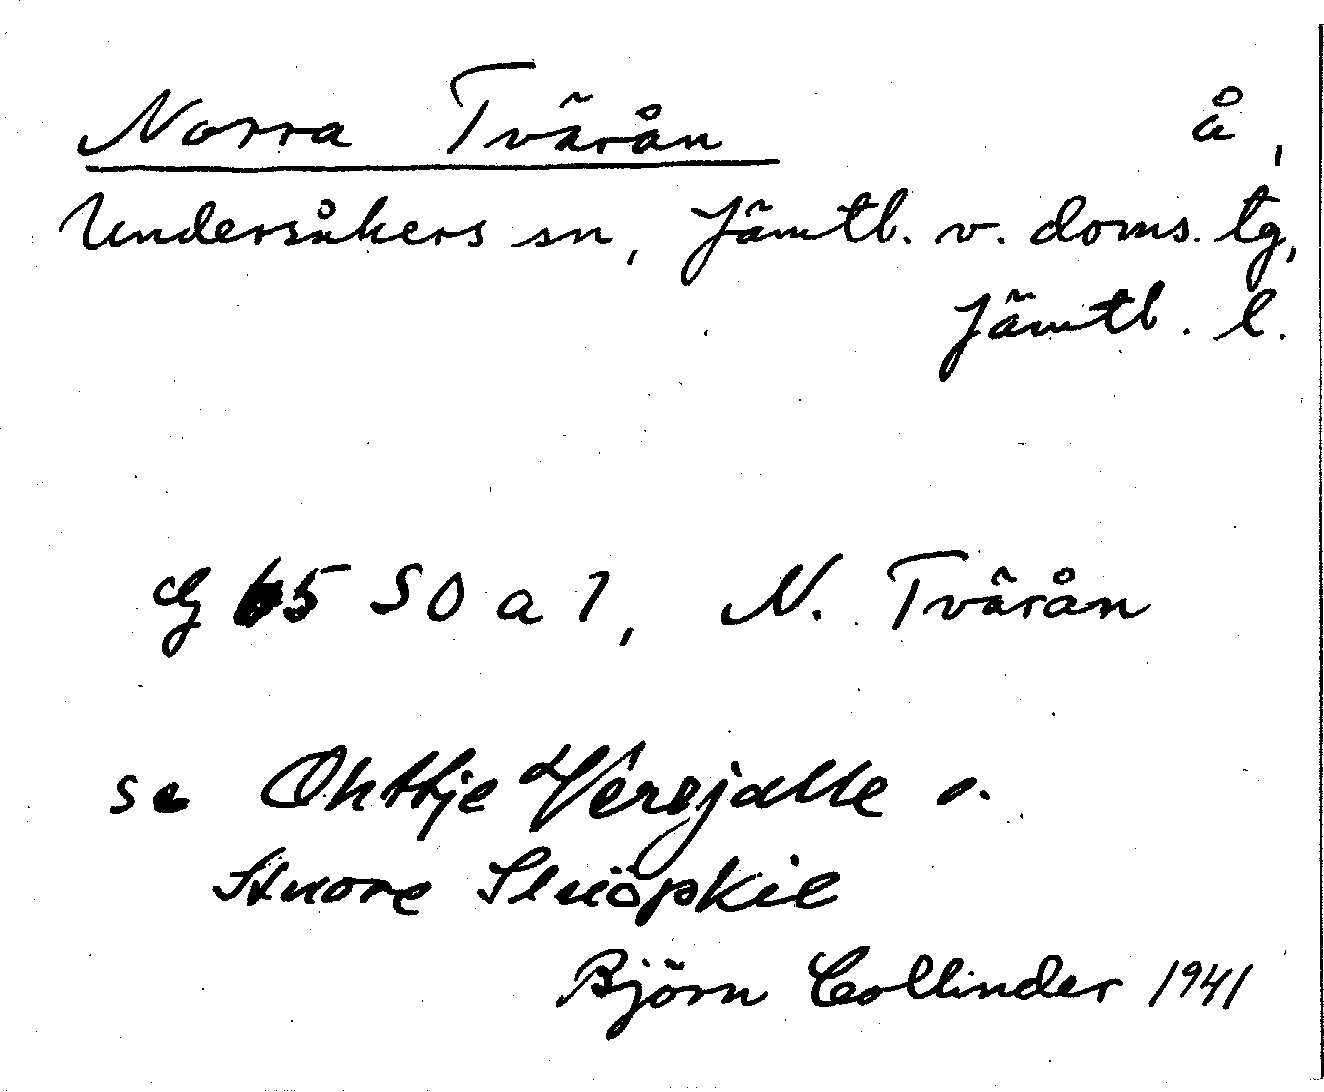 Norra Tvärån å,
Undersåkers sn, Jämtl. v. doms. tg,
Jämtl. l.
G 65 SO a 1, N. Tvärån
se Ohttje Vérejalle o.
Stuore Sluöpkie
Björn Collinder 1941